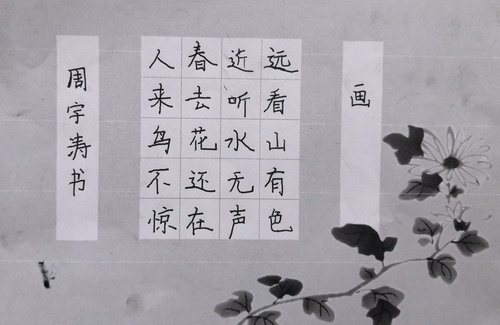 画
远看山有色
近听水无声
春去花还在
人来鸟不惊
周字寿书